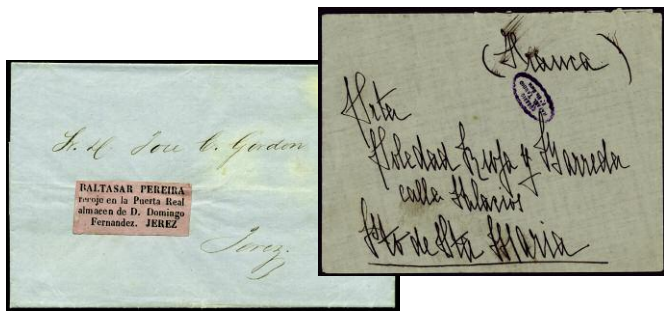 Sr. D. Jose C. Gordon
BALTASAR PEREIRA
recoje en la Puerta Real
almacen de D. Domingo
Fernandez. JEREZ
Jerez.
(Franca)
Srta
Soledad Rioja y Barreda
calle Palacios
Pto de Sta Maria